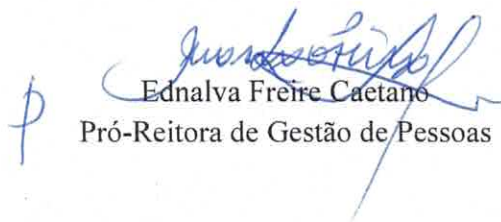 Ednalva Freire Caetano
Pró-Reitora de Gestão de Pessoas